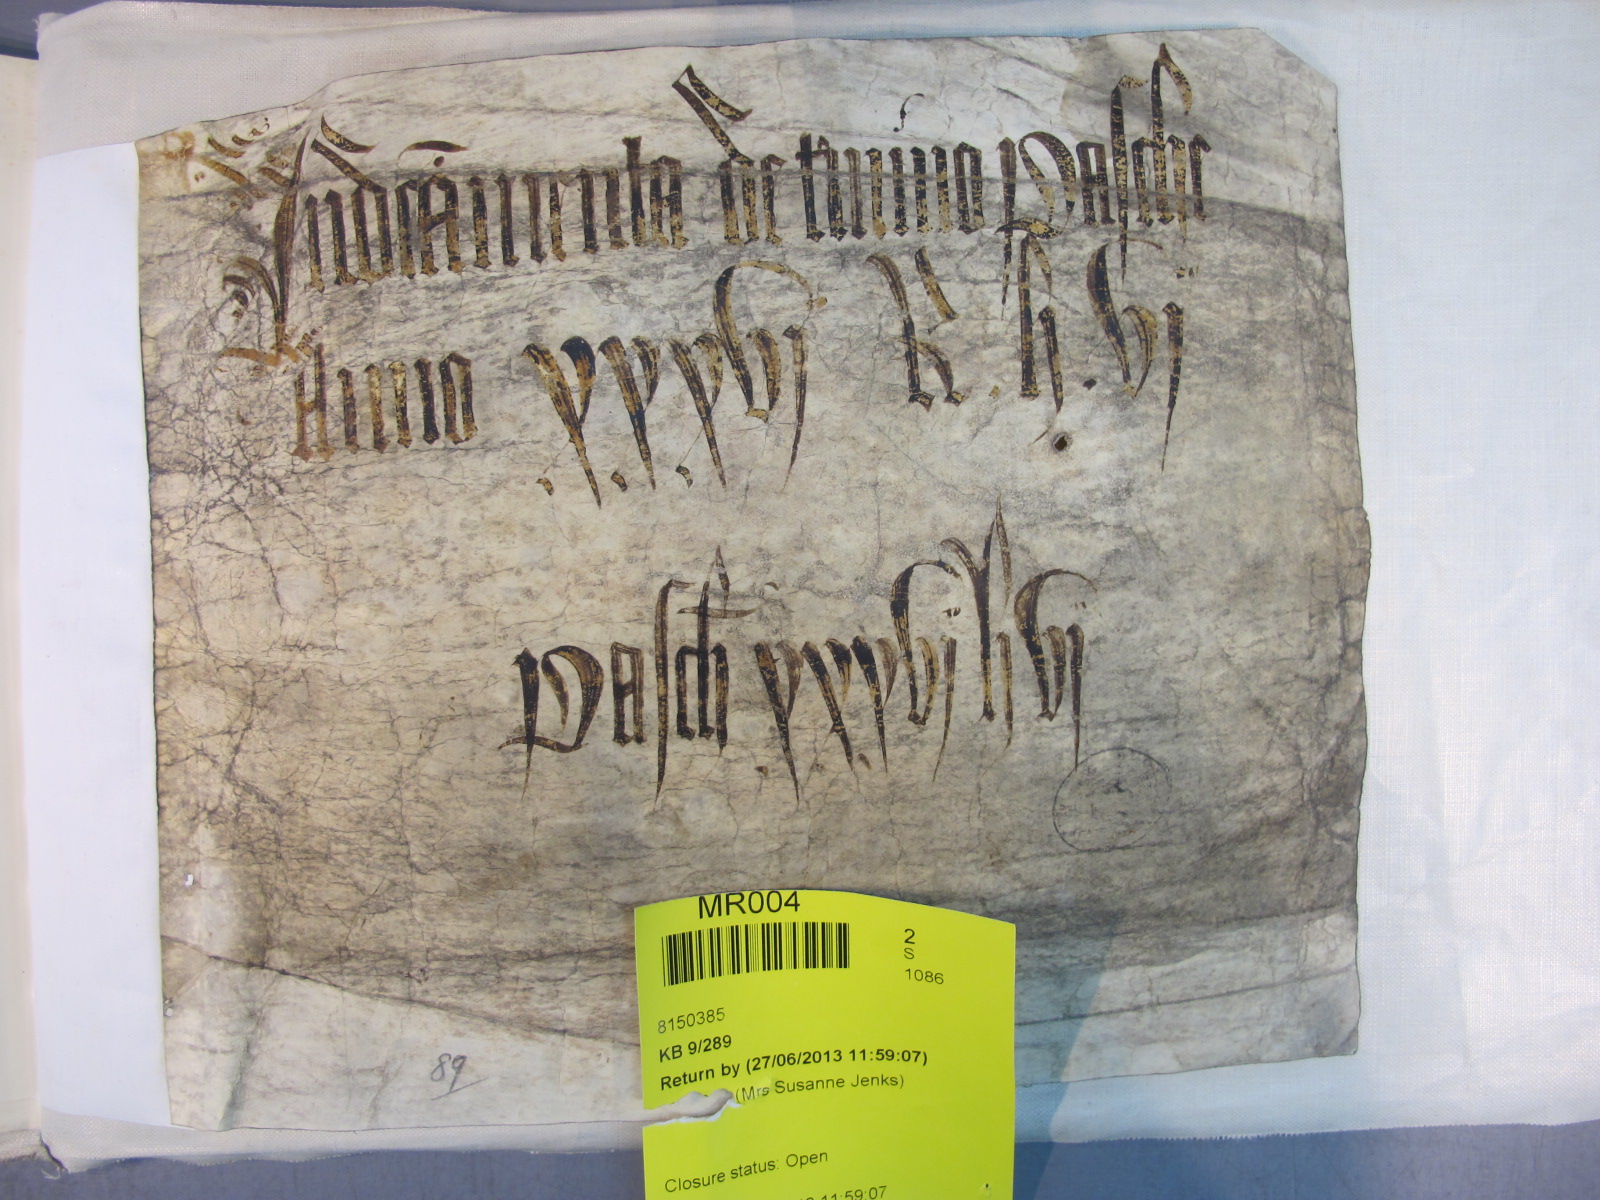 Indictamenta de termino Pasche
Anno xxxvj R. H. vj
Pasch xxxvj h vj
89
MR004
2
S
1086
8150385
KB 9/289
Return by (27/06/2013 11:59:07)
(Mrs Susanne Jenks)
Closure status: Open
11:59:07